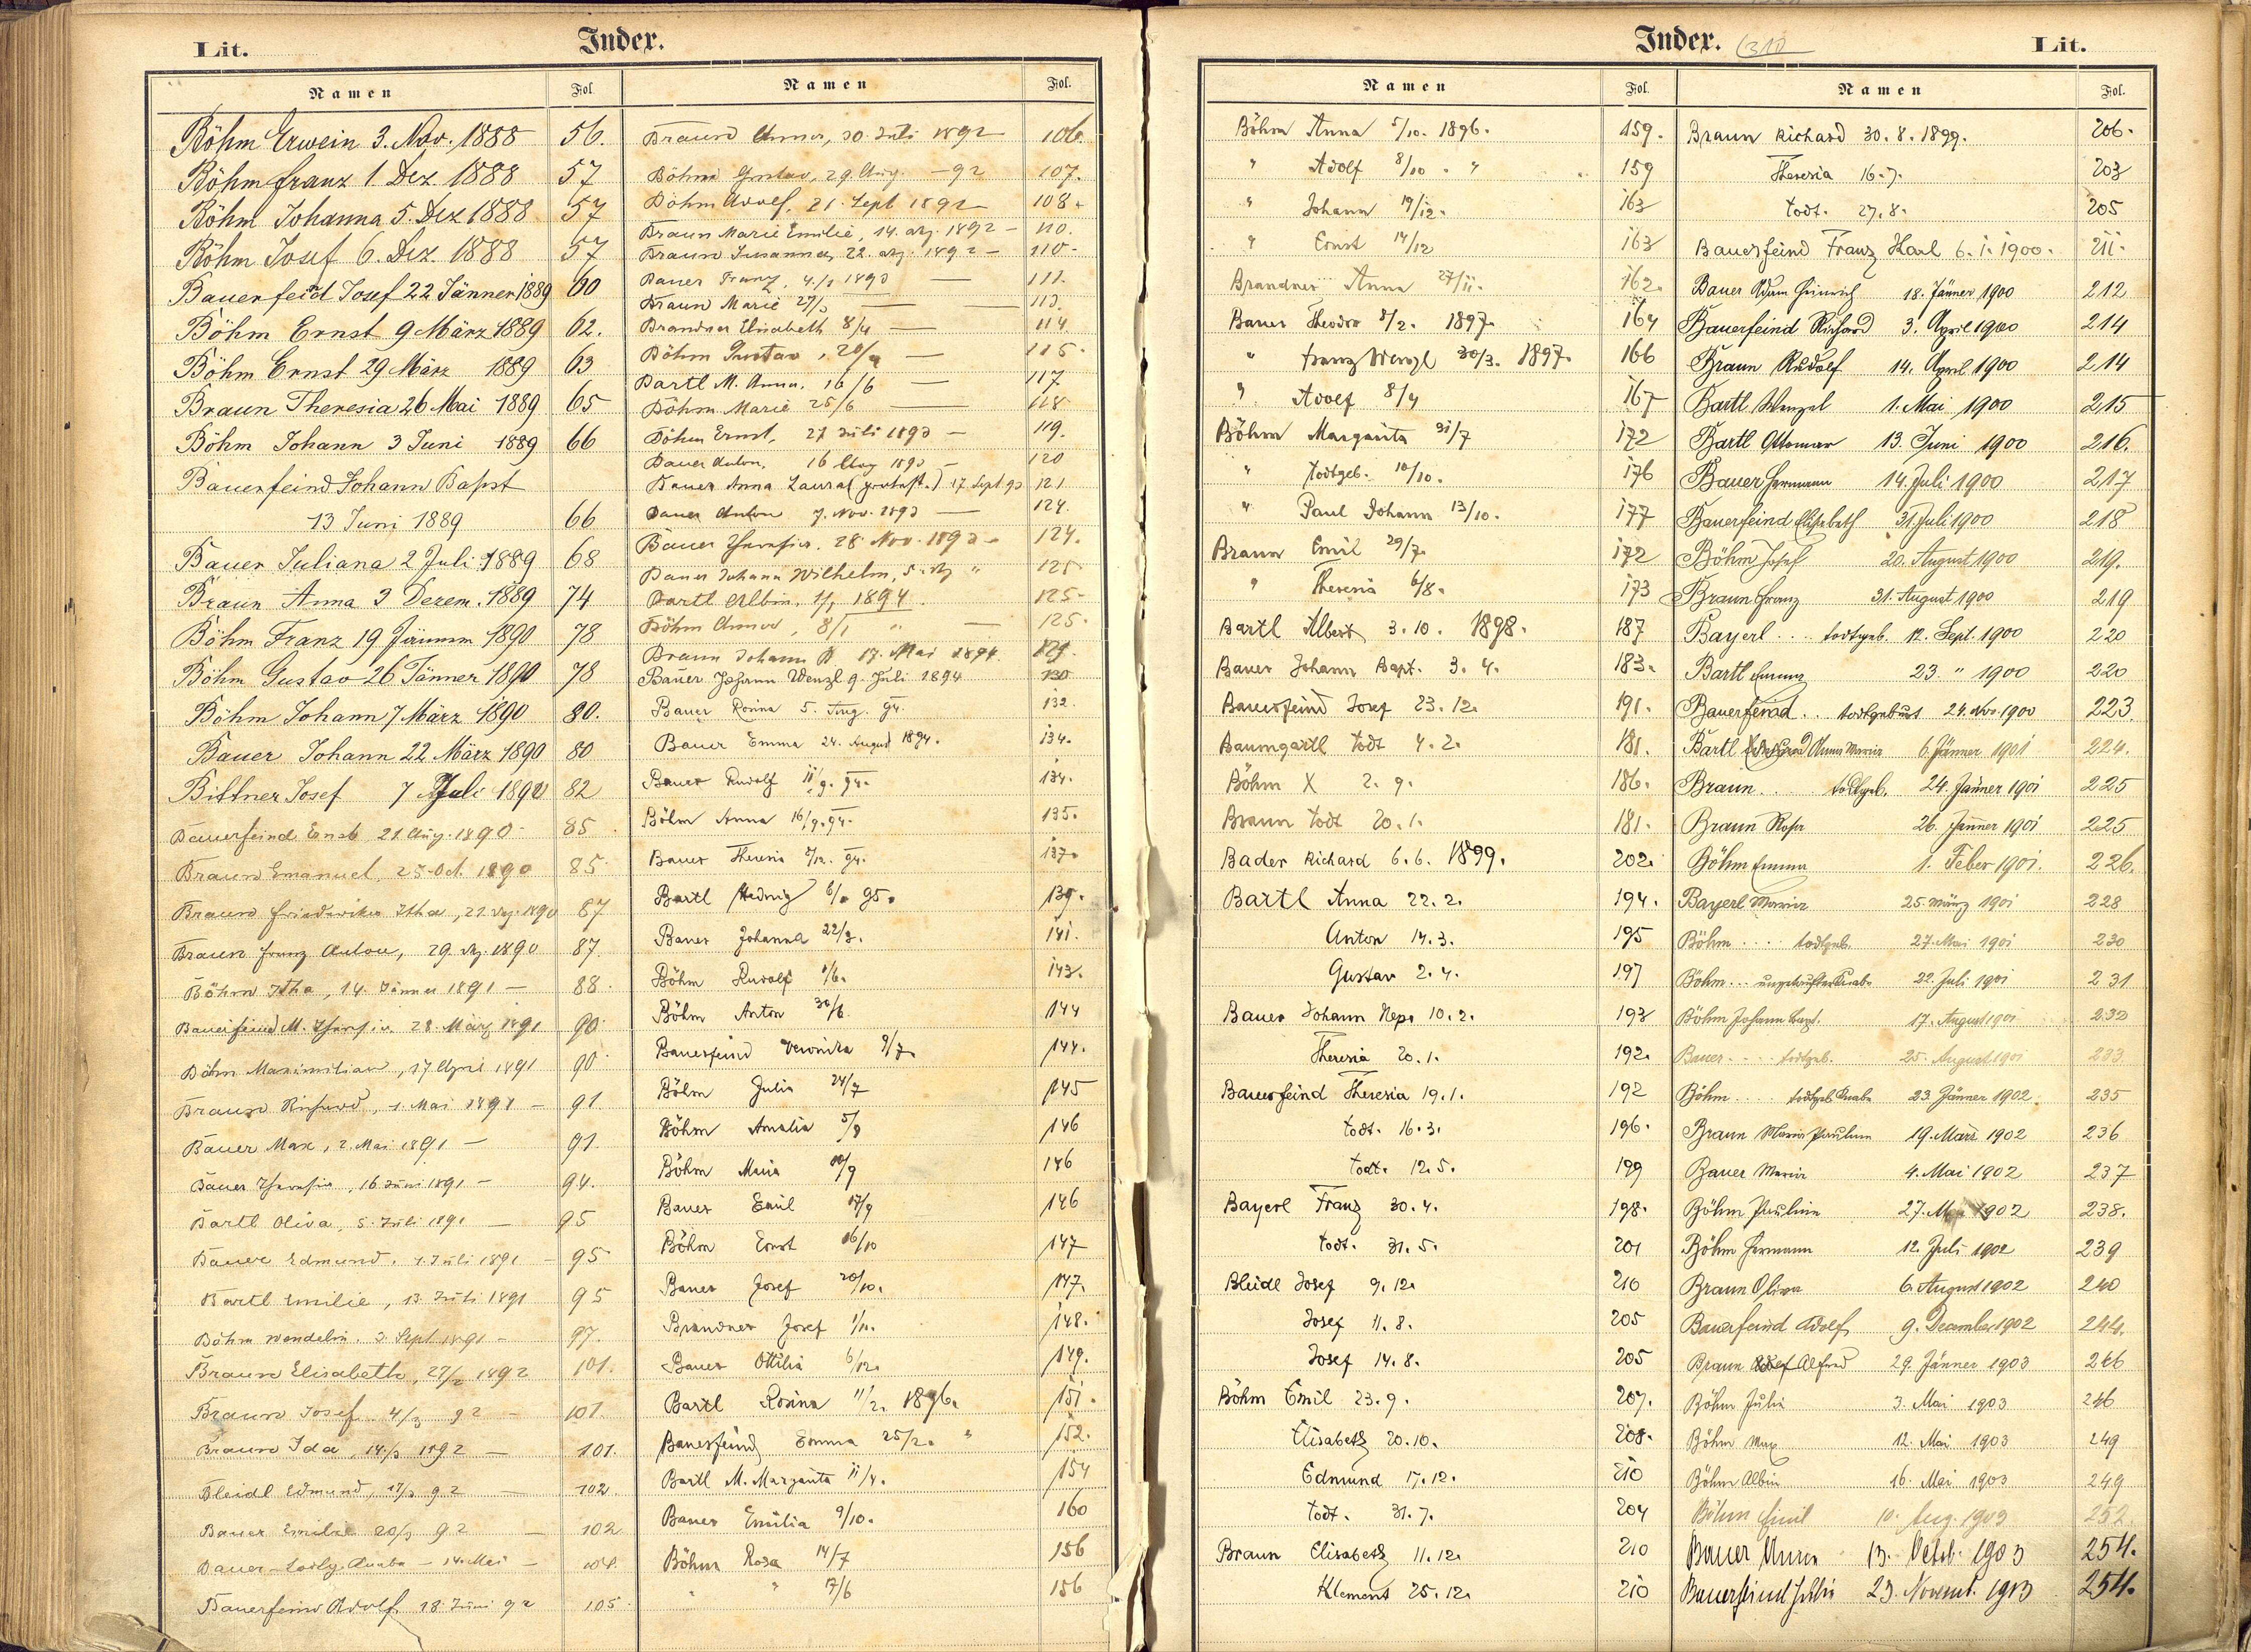 Lit.
Index.
Namen Fol. Namen Fol.
Böhm Erwein 3. Nov. 1888 56.
Böhm Franz 1. Dez. 1888 57
Böhm Johanna 5. Dez 1888 57
Böhm Josef 6. Dez. 1888 57
Bauerfeid Josef 22 Jänner 1889 60
Böhm Ernst 9 März 1889 62.
Böhm Ernst 29 März 1889 63
Braun Theresia 26 Mai 1889 65
Böhm Johann 3 Juni 1889 66
Bauerfeind Johann Bapst
13 Juni 1889 66
Bauer Juliana 2 Juli 1889 68
Braun Anna 3 Dezem. 1889 74
Böhm Franz 19 1890 78
Böhm Gustav 26 Jänner 1890 78
Böhm Johann 7 März 1890 80.
Bauer Johann 22 März 1890 80
Bittner Josef 7 Juli 1890 82
Bauerfeind Ernst 21. Aug. 1890 85
Braun Emanuel, 25. Oct. 1890 85
Braun Friederika Itha, 21. Dez. 1890 87
Braun Franz Anton, 29. Dez. 1890 87
Böhm Itha, 14. Jänner 1891 – 88.
Bauerfeind M. Theresia 28. März 1891 90.
Böhm Maximilian, 17 April 1891 90
Braun Richard, 1. Mai 1891 – 91
Bauer Max, 2. Mai 1891 – 91.
Bauer Theresia, 16 Juni 1891 – 94.
Bartl Oliva, 5. Juli 1891 – 95
Bauer Edmund, 1. Juli 1891 – 95
Bartl Emilie, 13. Juli 1891 95
Böhm Wendelin. 3 Sept. 1891 – 97.
Braun Elisabeth, 27/2 1892 101.
Braun Josef 4/3 92 – 101.
Braun Ida, 14/3 1892 – 101.
Bleidl Edmund, 17/3 92 – 102.
Bauer Emilie 20/3 92 – 102
Bauer – todtg. Knabe – 14. Mai – 104.
Bauerfeind Adolf 18. Juni 92 105.
Braun Anna, 30. Juli 1892 106.
Böhm Gustav, 29. Aug. – 92 107.
Böhm Adolf, 21. Sept 1892 – 108.
Braun Marie Emilie, 14. Dez. 1892 – 110.
Braun Susanna, 22. Dez. 1892 – 110.
Bauer Franz, 4/1 1893 – 111.
Braun Marie 27/3 – 113.
Brandner Elisabeth 8/4 – 114.
Böhm Gustav, 20/4 – 115.
Bartl M. Anna, 16/6 – 117
Böhm Marie 25/6 – 118
Böhm Ernst, 27 Juli 1893 – 119.
Bauer Anton, 16 Aug 1893 – 120
Bauer Anna Laura 17 Sept 93 121
Bauer Anton 7. Nov. 1893 – 124.
Bauer Theresia. 28 Nov. 1893 – 124.
Bauer Johann Wilhelm, 5. Dez " 125
Bartl Albin, 1/1 1894 125.
Böhm Anna, 8/1 " – 125.
Braun Johann 17. Mai 1894. 129.
Bauer Johann Wenzl 9. Juli 1894 130
Bauer Rosina 5. Aug. 94. 132.
Bauer Emma 24. August 1894. 134.
Bauer Rudolf 11/9. 94. 134.
Böhm Anna 16/9. 94. 135.
Bauer Theresia 94. 137.
Bartl Hedwig 95. 139.
Bauer Johanna 22/3. 141.
Böhm Rudolf 1/6. 143.
Böhm Anton 30/6. 144
Bauerfeind Veronika 9/7. 144.
Böhm Julia 24/7 145
Böhm Amalia 5/8 146
Böhm Maria 10/9 146
Bauer Emil 17/9 146
Böhm Ernst 16/10 147
Bauer Josef 20/10. 147.
Brandner Josef 1/11. 148.
Bauer Ottilia 6/12. 149.
Bartl Rosina 11/2. 1896. 151.
Bauerfeind Emma 25/2. " 152.
Bartl M. Margarita 11/4. 154
Bauer Emilia 9/10. 160
Böhm Rosa 14/7 156
" " 17/6 156
Index.
Lit.
Namen Fol. Namen Fol.
Böhm Anna 5/10. 1896. 159.
" Adolf 8/10. " 159
" Johann 19/12. 163
" Ernst 14/12 163
Brandner Anna 27/11. 162.
Bauer Theodor 8/2. 1897. 164
" Franz Wenzl 30/3. 1897. 166
" Adolf 8/4 167
Böhm Margarita 31/7 172
" todtgeb. 10/10. 176
" Paul Johann 13/10. 177
Braun Emil 29/7. 172
" Theresia 6/8. 173
Bartl Albert 3. 10. 1898. 187
Bauer Johann Bapt. 3. 4. 183.
Bauerfeind Josef 23. 12. 191.
Baumgartl todt 4. 2. 181.
Böhm X 2. 9. 186.
Braun todt 20. 1. 181.
Bader Richard 6. 6. 1899. 202.
Bartl Anna 22. 2. 194.
Anton 14. 3. 195
Gustav 2. 4. 197
Bauer Johann Nep. 10. 2. 193
Theresia 20. 1. 192.
Bauerfeind Theresia 19. 1. 192
todt. 16. 3. 196.
todt. 12. 5. 199
Bayerl Franz 30. 4. 198.
todt. 31. 5. 201
Bleidl Josef 9. 12. 210
Josef 11. 8. 205
Josef 14. 8. 205
Böhm Emil 23. 9. 207.
Elisabeth 20. 10. 208.
Edmund 17. 12. 210
todt. 31. 7. 204
Braun Elisabeth 11. 12. 210
Klement 25. 12. 210
Braun Richard 30. 8. 1899. 206.
Theresia 16. 7. 203
todt. 27. 8. 205
Bauerfeind Franz Karl 6. 1. 1900. 211.
Bauer Adam Heinrich 18. Jänner 1900 212
Bauerfeind Richard 3. April 1900 214
Braun Rudolf 14. April 1900 214
Bartl Wenzel 1. Mai 1900 215
Bartl Ottomar 13. Juni 1900 216.
Bauer Hermann 14. Juli 1900 217
Bauerfeind Elisabeth 31. Juli 1900 218
Böhm Josef 20. August 1900 219.
Braun Franz 31. August 1900 219
Bayerl .. todtgeb. 12. Sept. 1900 220
Bartl Emma 23. " 1900 220
Bauerfeind .. todtgeburt 24. Nov. 1900 223.
Bartl Anna Maria 6. Jänner 1901 224.
Braun .. todtgeb. 24. Jänner 1901 225
Braun Rosa 26. Jänner 1901 225
Böhm Emma 1. Feber 1901. 226.
Bayerl Maria 25. März 1901 228
Böhm .... todtgeb. 27. Mai 1901 230
Böhm ... ungetaufter Knabe 22. Juli 1901 231
Böhm Johann Bapt. 17. August 1901 232
Bauer .... todtgeb. 25. August 1901 233.
Böhm ... todtgeb. Knabe 23. Jänner 1902. 235
Braun Maria Paulina 19. März 1902 236
Bauer Maria 4. Mai 1902 237
Böhm Paulina 27. Mai 1902 238.
Böhm Hermann 12. Juli 1902 239
Braun Oliva 6. August 1902 240
Bauerfeind Adolf 9. December 1902 244.
Braun Alfred 29. Jänner 1903 246
Böhm Julia 3. Mai 1903 246
Böhm Max 12. Mai 1903 249
Böhm Albin 16. Mai 1903 249
Böhm Emil 10. Aug. 1903 252.
Bauer Anna 13. Octob. 1903 254.
Bauerfeind Julia 23. Novemb. 1903 254.